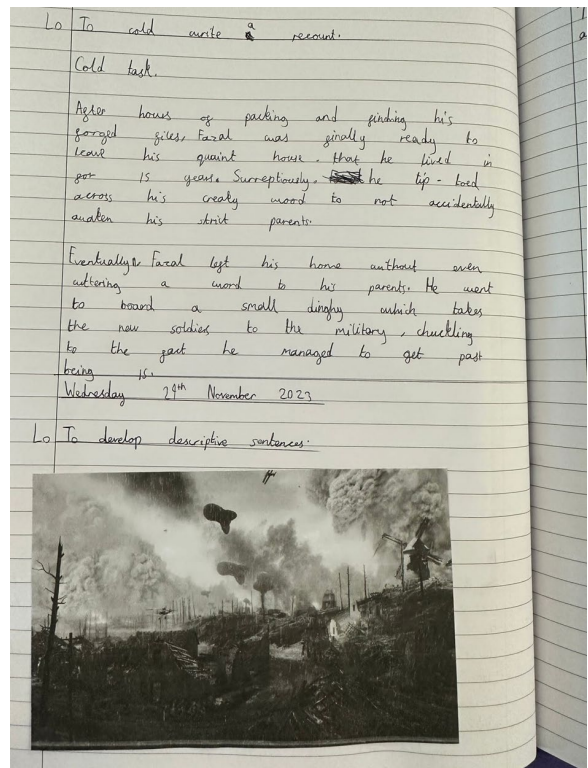 Lo To cold write a recount.
Cold task.
After hours of packing and finding his
forged files, Fazal was finally ready to
leave his quaint house. that he lived in
for 15 years. Surreptiously. he tip-toed
across his creaky wood to not accidentally
awaken his strict parents.
Eventually Fazal left his home without even
uttering a word to his parents. He went
to board a small dinghy which takes
the new soldiers to the military, chuckling
to the fact he managed to get past
being 15.
Wednesday 29th November 2023
Lo To develop descriptive sentences.